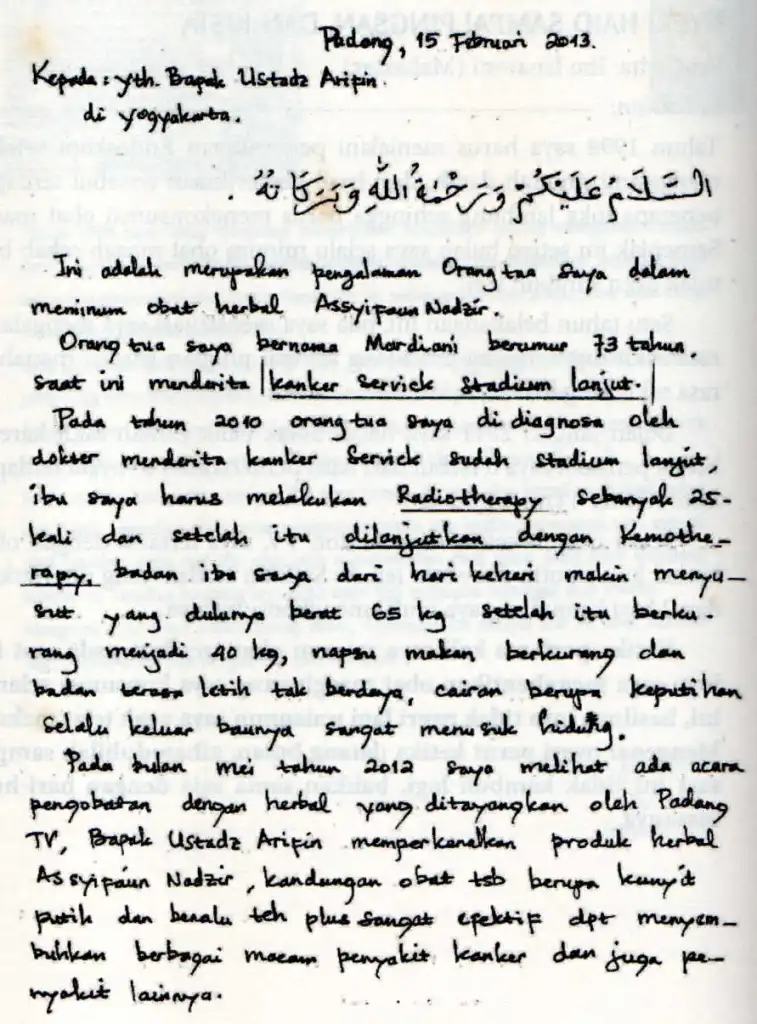 Padang, 15 Februari 2013.
Kepada : yth. Bapak Ustadz Aripin
di yogyakarta.
السَّلَامُ عَلَيْكُمْ وَرَحْمَةُ اللهِ وَبَرَكَاتُهُ .
Ini adalah merupakan pengalaman Orang tua saya dalam
meninum obat herbal Assyipaun Nadzir.
Orang tua saya bernama Mardiani berumur 73 tahun.
saat ini menderita kanker Servick Stadium lanjut.
Pada tahun 2010 orang tua saya di diagnosa oleh
dokter menderita kanker Servick sudah Stadium lanjut,
ibu saya harus melakukan Radiotherapy sebanyak 25-
kali dan setelah itu dilanjutkan dengan Kemothe-
rapy, badan ibu saya dari hari kehari makin menyu-
sut yang dulunya berat 65 kg setelah itu berku-
rang menjadi 40 kg, napsu makan berkurang dan
badan terasa letih tak berdaya, cairan berupa keputihan
selalu keluar baunya sangat menusuk hidung.
Pada bulan mei tahun 2012 saya melihat ada acara
pengobatan dengan herbal yang ditayangkan oleh Padang
TV, Bapak Ustadz Aripin memperkenalkan produk herbal
Assyipaun Nadzir, kandungan obat tsb berupa kunyit
putih dan benalu teh plus sangat efektif dpt menyem-
buhkan berbagai macam penyakit kanker dan juga pe-
nyakit lainnya.